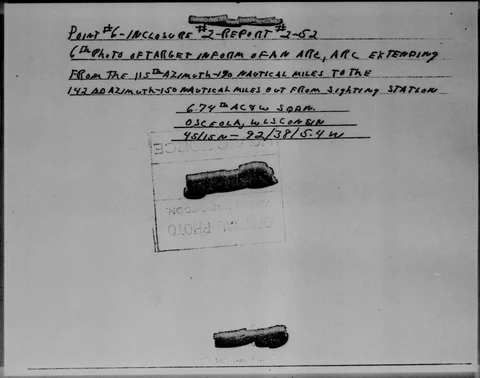 POINT #6-INCLOSURE #2-REPORT #2-52
6TH PHOTO OF TARGET IN FORM OF AN ARC, ARC EXTENDING
FROM THE 115TH AZIMUTH-190 NAUTICAL MILES TO THE
142 ND AZIMUTH-150 NAUTICAL MILES OUT FROM SIGHTING STATION
674TH AC&W SQDN.
OSCEOLA, WISCONSIN
45/15N-92/38/5.4W
OFFICIAL PHOTO